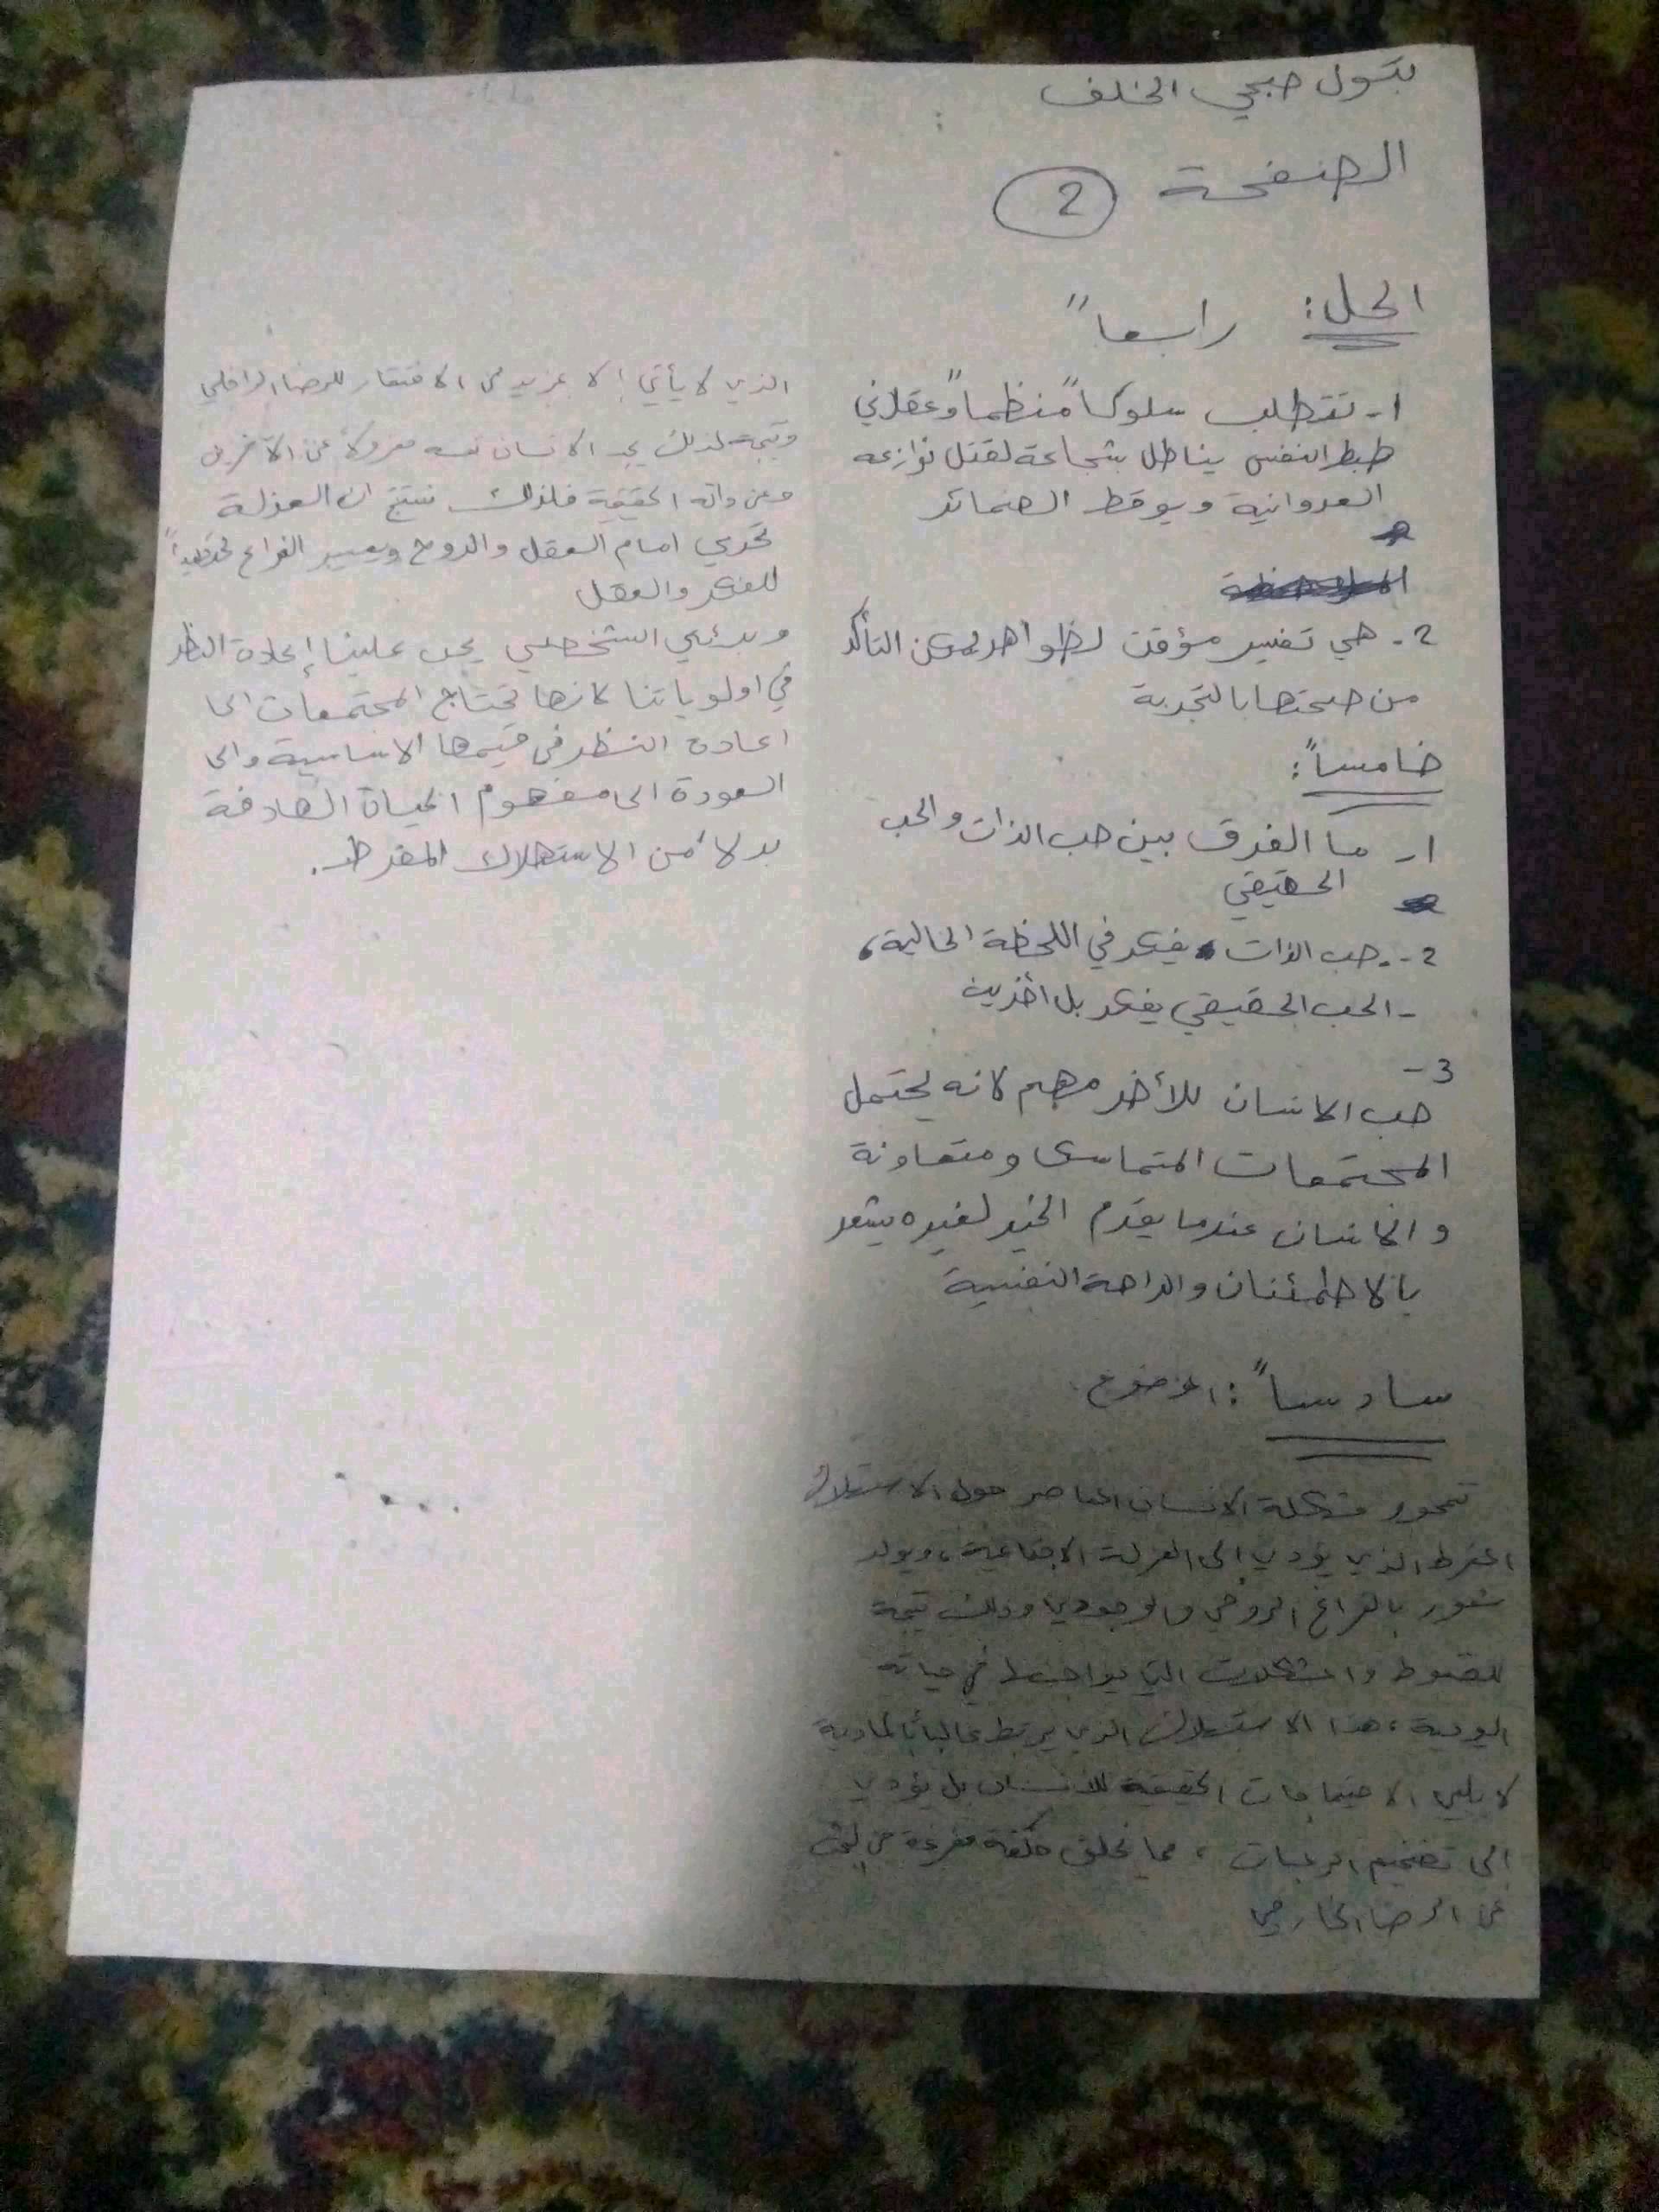 بتول صبحي الخلف
الصفحة 2
الحل: رابعا"
1- تتطلب سلوكا" منظما" وعقلاني
ضبط النفس يناضل بشجاعة لقتل نوازعه
العدوانية ويوقظ الضمائر
2- هي تفسير مؤقت لظواهر يمكن التأكد
من صحتها بالتجربة
خامسا":
1- ما الفرق بين حب الذات والحب
الحقيقي
2-. حب الذات يفكر في اللحظة الحالية،
- الحب الحقيقي يفكر بل اخرين
3-
حب الانسان للأخر مهم لانه يحتمل
المجتمعات المتماسكى ومتعاونة
والانسان عندما يقدم الخير لغيره يشعر
بالاطمئنان والراحة النفسية
سادسا": الموضوع
تتمحور مشكلة الانسان المعاصر حول الاستهلاك
المفرط الذي يؤدي الى العزلة الاجتماعية، ويولد
شعور بالفراغ الروحي والوجودي وذلك نتيجة
للضغوط والمشكلات التي يواجهها في حياته
اليومية، هذا الاستهلاك الذي يرتبط غالباً بالمادية
لا يلبي الاحتياجات الحقيقية للانسان بل يؤدي
الى تضخيم الرغبات، مما يخلق حلقة مفرغة من البحث
عن الرضا الخارجي
الذي لا يأتي إلا بمزيد من الافتقار للرضا الداخلي
ونتيجة لذلك يجد الانسان نفسه معزولاً عن الآخرين
وعن ذاته الحقيقية فلذلك نستنتج ان العزلة
تحدي امام العقل والروح ويصير الفراغ تهديداً
للفكر والعقل
وبرئيي الشخصي يجب علينا إعادة النظر
في اولوياتنا لانها تحتاج المجتمعات الى
اعادة النظر في قيمها الاساسية والى
العودة الى مفهوم الحياة الهادفة
بدلاً من الاستهلاك المفرط.